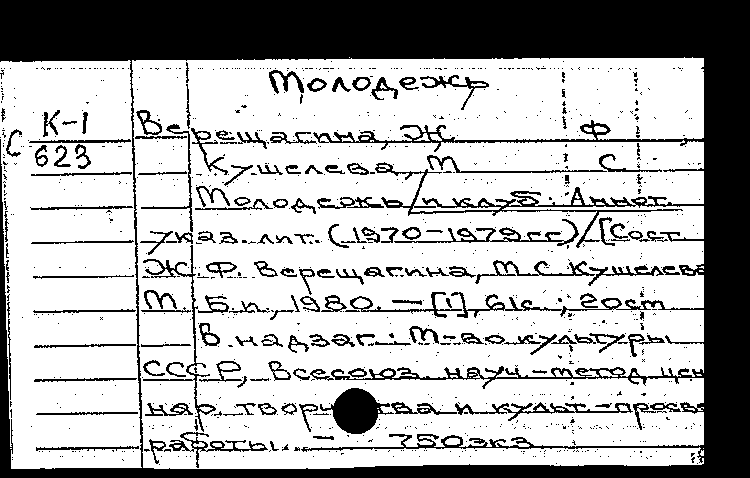 Молодежь
К-1 Верещагина, Ж Ф
С 623 Кушелева, М С
Молодежь/и клуб: Аннот.
указ. лит. (1970-1979гг)/[Сост.
Ж. Ф. Верещагина, М С Кушелева
М. Б.и, 1980. — [1], 61с ; 20см
В надзаг: М-во культуры
СССР, Всесоюз. науч-метод. цен
нар. творчества и культ-просве
работы. — 750экз